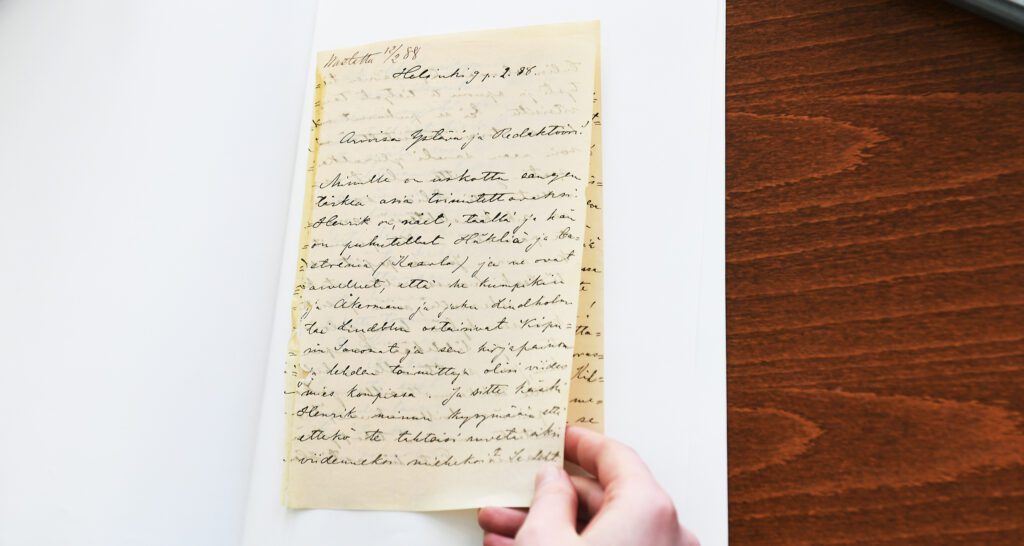 Vastattu 12/2 88
Helsinki 9 p. 2. 88.
Arvoisa Ystävä ja Redaktööri!
Minulle on uskottu sangen
tärkeä asia toimitettavaksi.
Henrik on, näet, täällä ja hän
on puhutellut Häkliä ja Ca-
strénia (Kaarlo) ja ne ovat
arvelleet, että he kumpikin
ja Åkerman ja juku Lindholm
tai Lindblm ostaisivat Kipu-
rin Sanomat ja sen kirjapainon
ja lehden toimittaja olisi viides
mies kompissa. Ja sitte käski
Henrik minun kysymään että
ettekö te tahtoisi ruveta siksi
viidenneksi mieheksi? Se leht